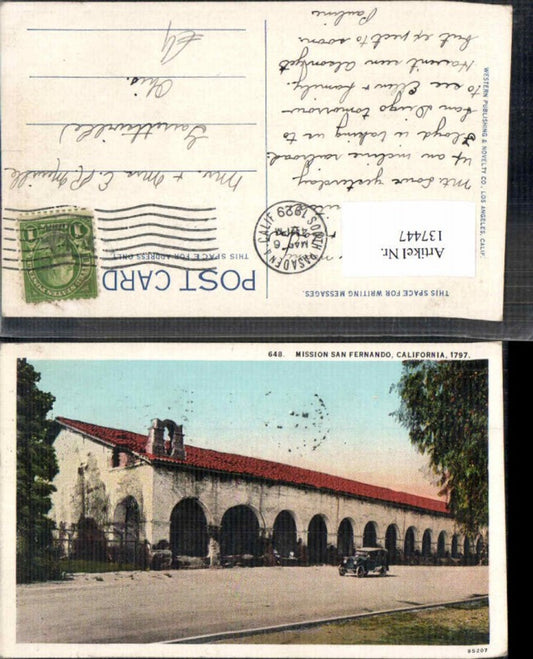 POST CARD
THIS SPACE FOR WRITING MESSAGES.
THIS SPACE FOR ADDRESS ONLY
WESTERN PUBLISHING & NOVELTY CO., LOS ANGELES, CALIF.
SOUTH PASADENA CALIF
MAR 6
1929
1
Artikel Nr.
137447
Mt. Lowe yesterday
up an incline railroad.
Floyd is taking us to
San Diego tomorrow
to see Ellen & family.
Haven't seen
but expect to soon.
Pauline
Mr. & Mrs. C. R.
Ohio.
648. MISSION SAN FERNANDO, CALIFORNIA, 1797.
95207